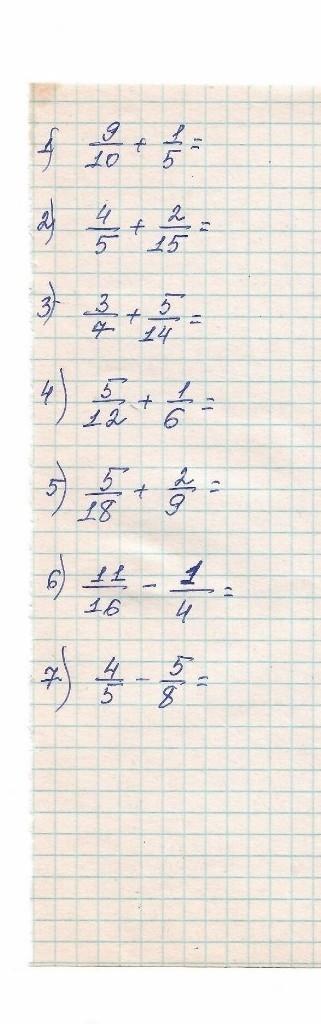 1) 9/10 + 1/5 =
2) 4/5 + 2/15 =
3) 3/7 + 5/14 =
4) 5/12 + 1/6 =
5) 5/18 + 2/9 =
6) 11/16 - 1/4 =
7) 4/5 - 5/8 =